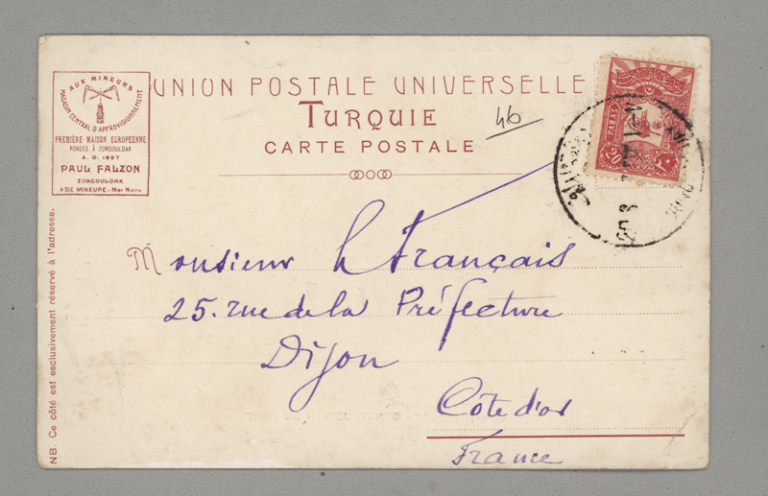 AUX MINEURS
MAGASIN CENTRAL D'APPROVISIONNEMENT
PREMIÈRE MAISON EUROPEENNE
FONDÉE À ZONGOULDAK
A. D. 1897
PAUL FALZON
ZONGOULDAK
ASIE MINEURE - Mer Noire
UNION POSTALE UNIVERSELLE
TURQUIE
CARTE POSTALE
46
20 PARAS 20
Monsieur L. Français
25. rue de la Préfecture
Dijon
Côte d'or
France
NB. Ce côté est exclusivement réservé à l'adresse.